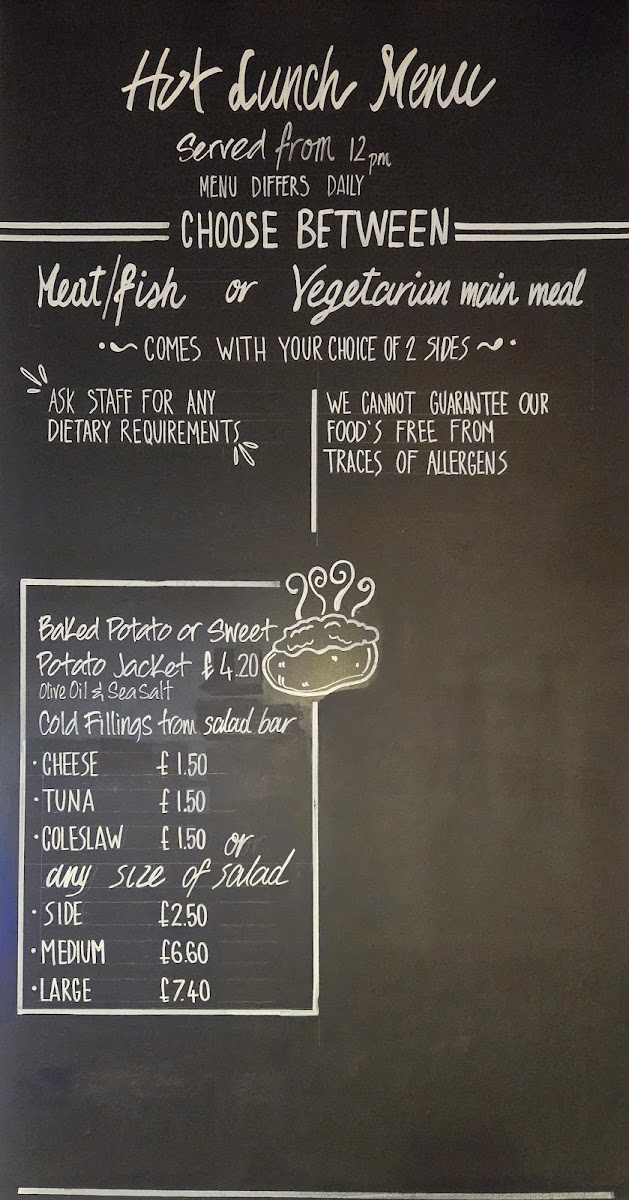 Hot Lunch Menu
Served from 12pm
MENU DIFFERS DAILY
CHOOSE BETWEEN
Meat/fish or Vegetarian main meal
COMES WITH YOUR CHOICE OF 2 SIDES
ASK STAFF FOR ANY
DIETARY REQUIREMENTS
WE CANNOT GUARANTEE OUR
FOOD'S FREE FROM
TRACES OF ALLERGENS
Baked Potato or Sweet
Potato Jacket £4.20
Olive Oil & Sea Salt
Cold Fillings from salad bar
· CHEESE £1.50
· TUNA £1.50
· COLESLAW £1.50 or
any size of salad
· SIDE £2.50
· MEDIUM £6.60
· LARGE £7.40